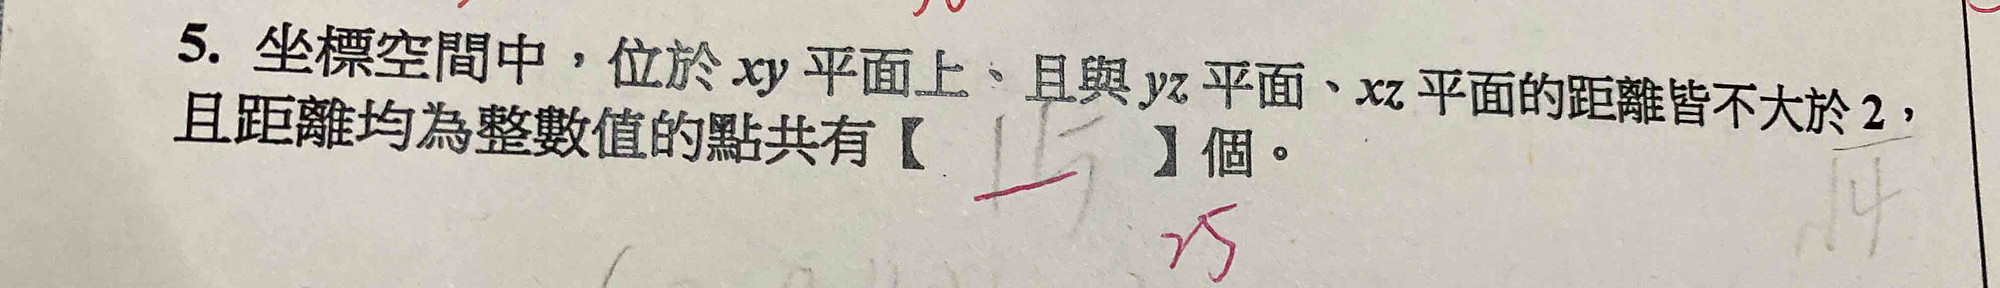 5. 坐標空間中，位於 xy 平面上、且與 yz 平面、xz 平面的距離皆不大於 2，
且距離均為整數值的點共有【 15 】個。
25